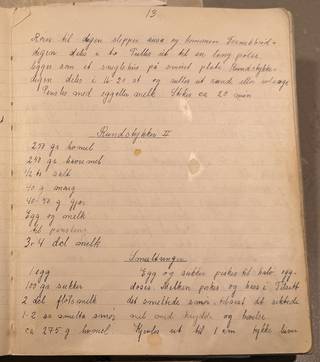 13
Rører til deigen slipper ausa og bommen. Formebrød =
deigen deles i to. Trilles ut til en lang pølse,
legges som et sneglehus på smurt plate. Rundstykke =
deigen deles i 16-20 st og rulles ut runde eller avlange
Pensles med egg eller melk. Stekes ca 20 min
Rundstykker II
250 gr hvmel
240 gr havremel
1/2 ts salt
40 g marg
40-50 g gjær
Egg og melk
til pensling
3-4 del melk
Smultringer
1 egg
100 gr sukker
2 del fløtemelk
1-2 ss smelta smør
ca 275 g hvmel
Egg og sukker piskes til hvit egg-
dosis. Melken piskes og has i. Tilsett
det smeltede smør, tilsett det siktede
mel med krydder og bakep.
Kjevles ut til 1 cm tykk leiv